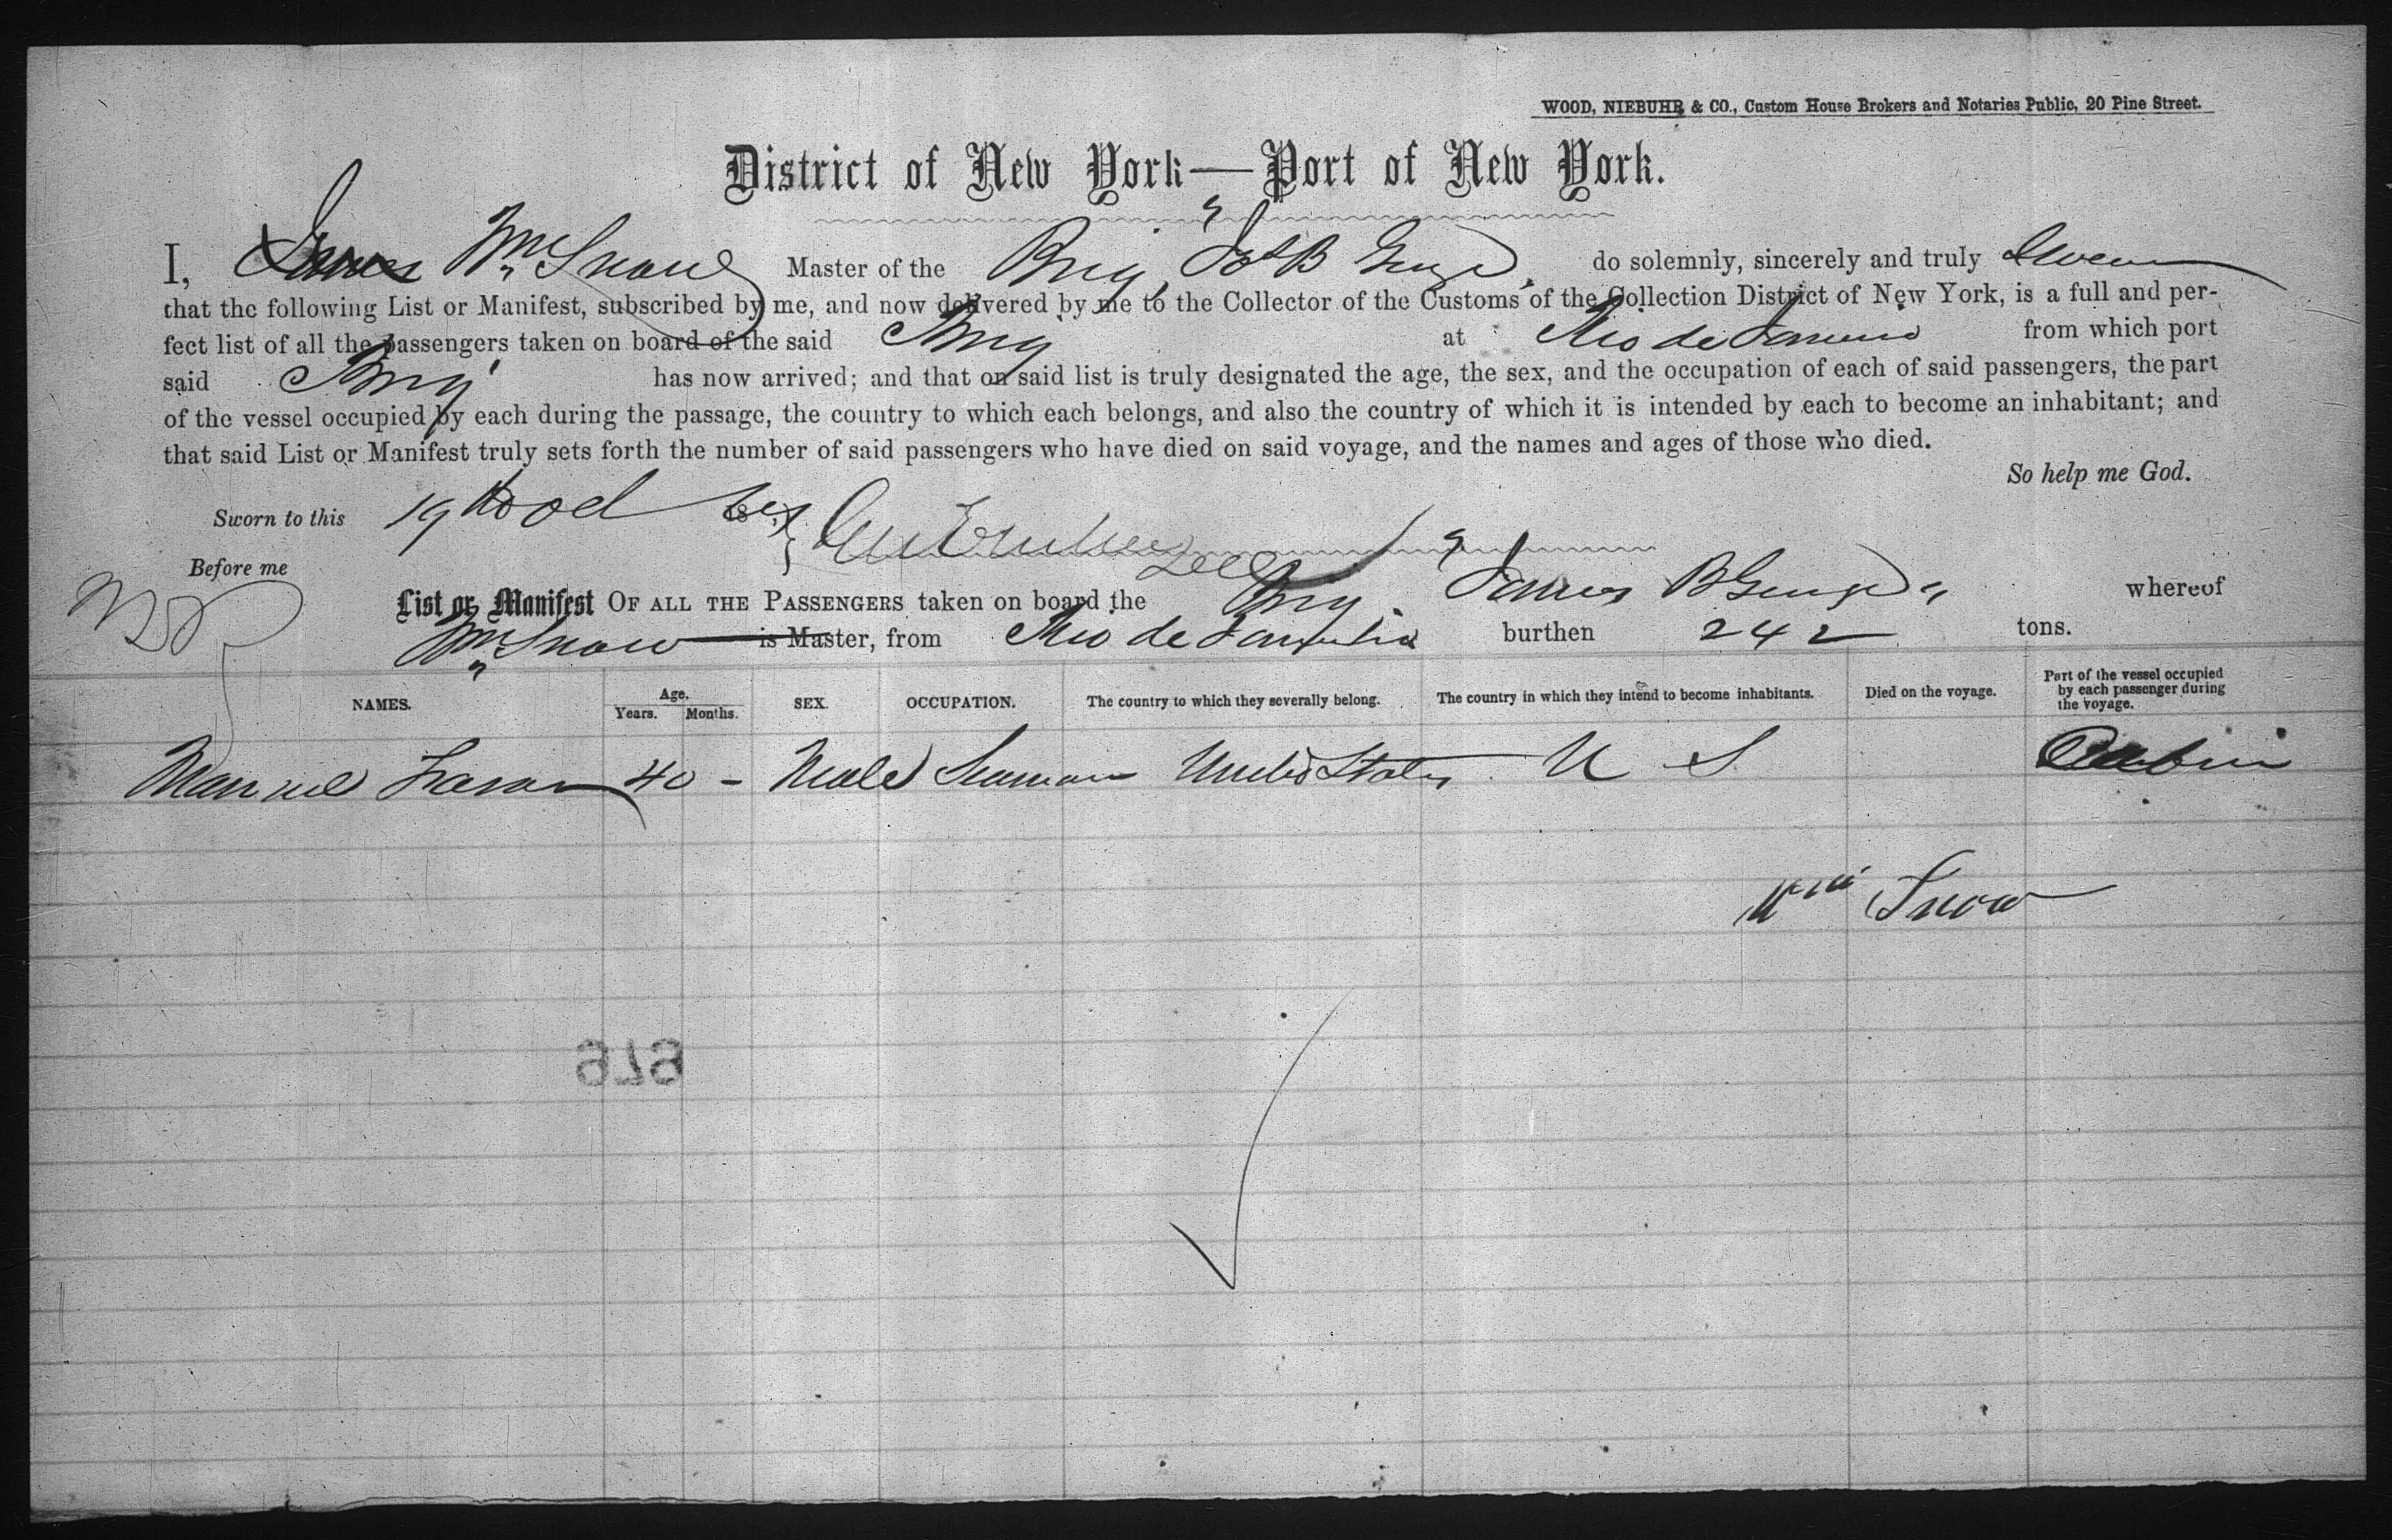 WOOD, NIEBUHR & CO., Custom House Brokers and Notaries Public, 20 Pine Street.
District of New York—Port of New York.
I, Wm Snow Master of the Brig Jas B do solemnly, sincerely and truly Swear
that the following List or Manifest, subscribed by me, and now delivered by me to the Collector of the Customs of the Collection District of New York, is a full and per-
fect list of all the passengers taken on board of the said Brig at Rio de Janeiro from which port
said Brig has now arrived; and that on said list is truly designated the age, the sex, and the occupation of each of said passengers, the part
of the vessel occupied by each during the passage, the country to which each belongs, and also the country of which it is intended by each to become an inhabitant; and
that said List or Manifest truly sets forth the number of said passengers who have died on said voyage, and the names and ages of those who died.
So help me God.
Sworn to this 19 18
Before me
List or Manifest OF ALL THE PASSENGERS taken on board the Brig James B whereof
Wm Snow is Master, from Rio de Janeiro burthen 242 tons.
NAMES. Age. Years. Months. SEX. OCCUPATION. The country to which they severally belong. The country in which they intend to become inhabitants. Died on the voyage. Part of the vessel occupied by each passenger during the voyage.
Manuel 40 - Male Seaman United States U S Cabin
Wm Snow
979